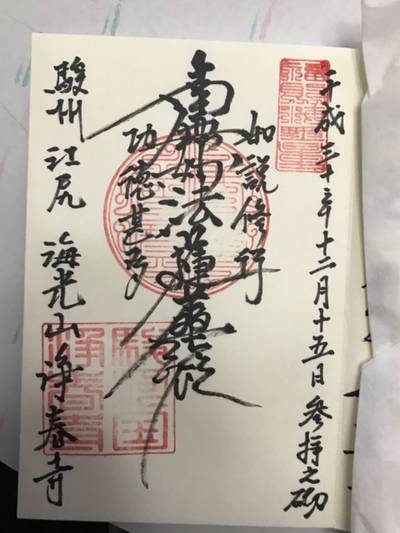 平成三十年十二月十五日 参拝之砌
如説修行
南無妙法蓮華経
功徳甚多
駿州 江尻 海光山 浄春寺